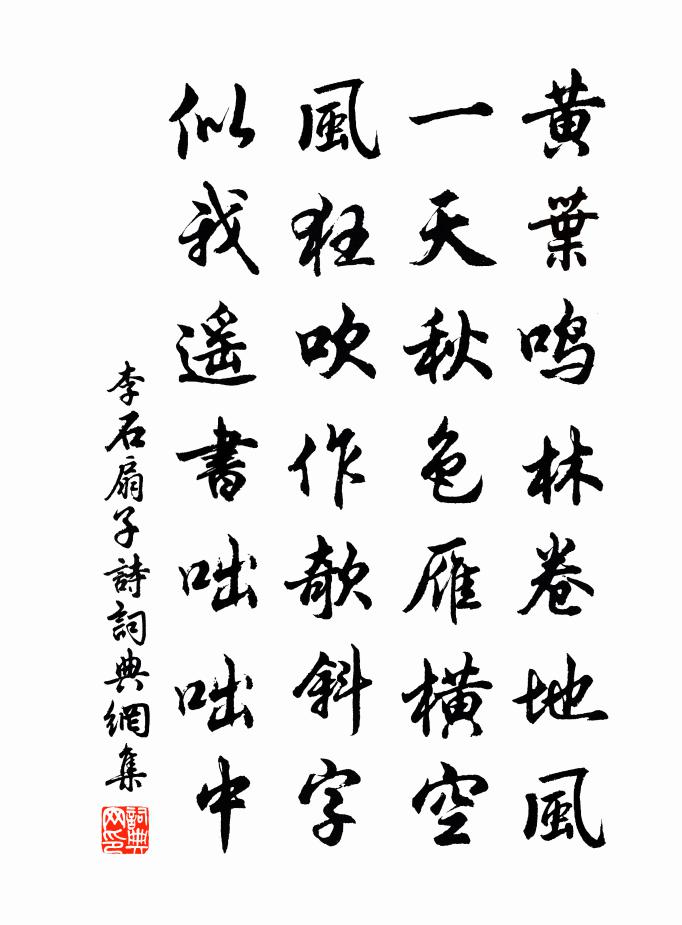 黄葉鳴林卷地風
一天秋色雁橫空
風狂吹作欹斜字
似我遥書咄咄中
李石扇子詩詞典網集
詞典网印